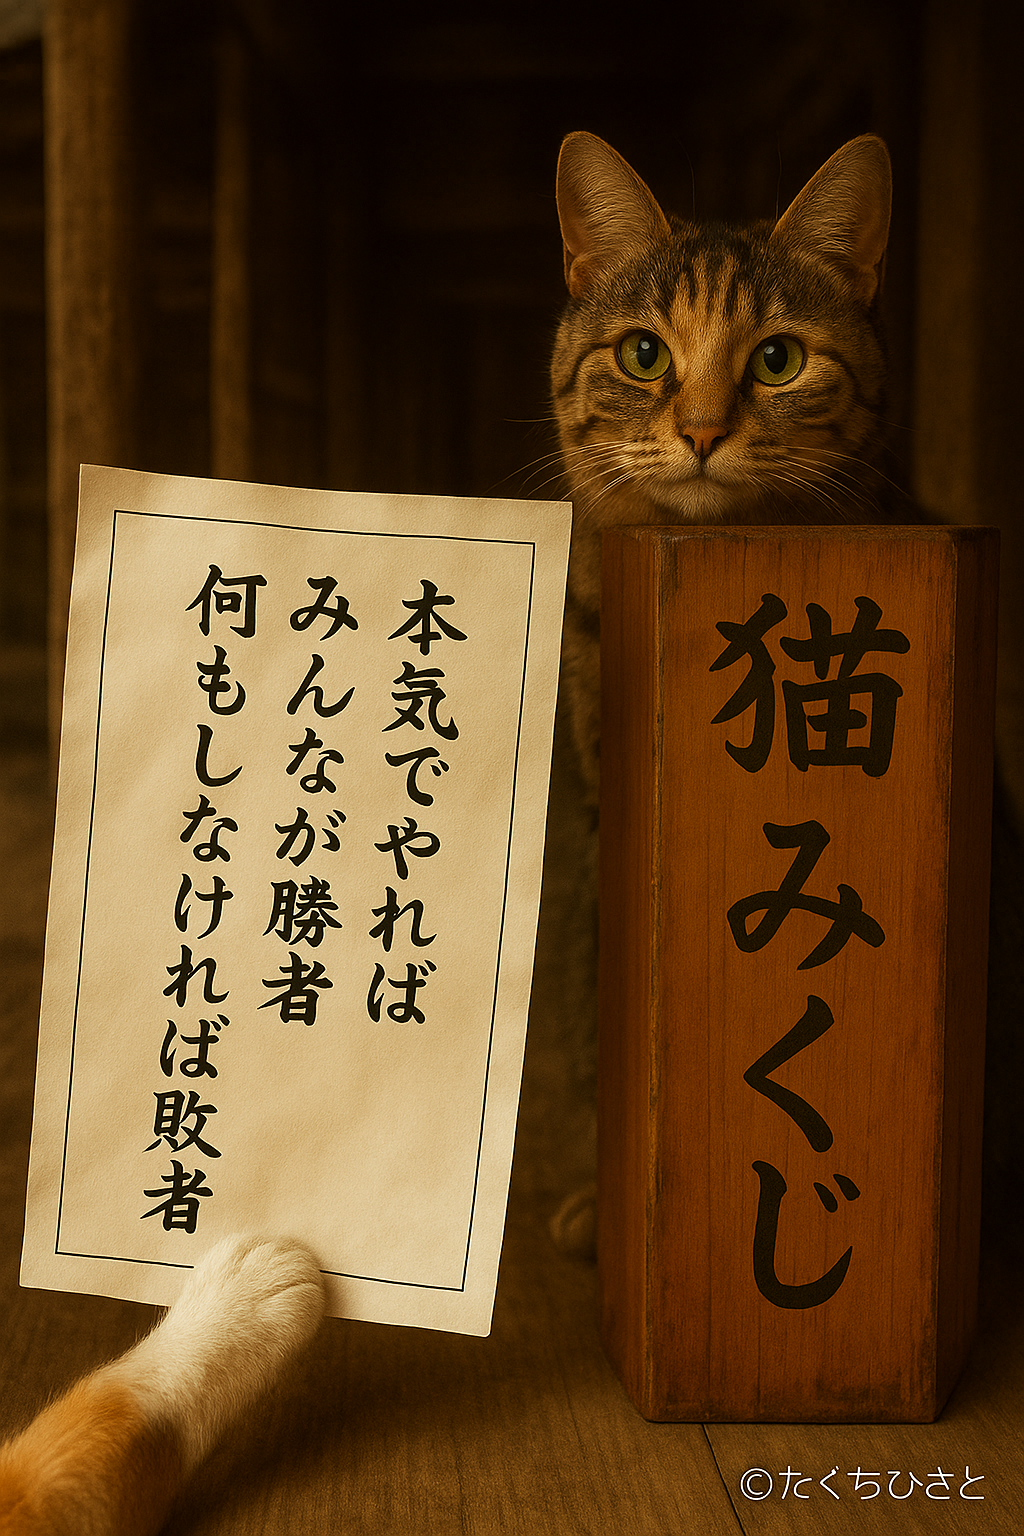 本気でやれば
みんなが勝者
何もしなければ敗者
猫みくじ
©たくちひさと